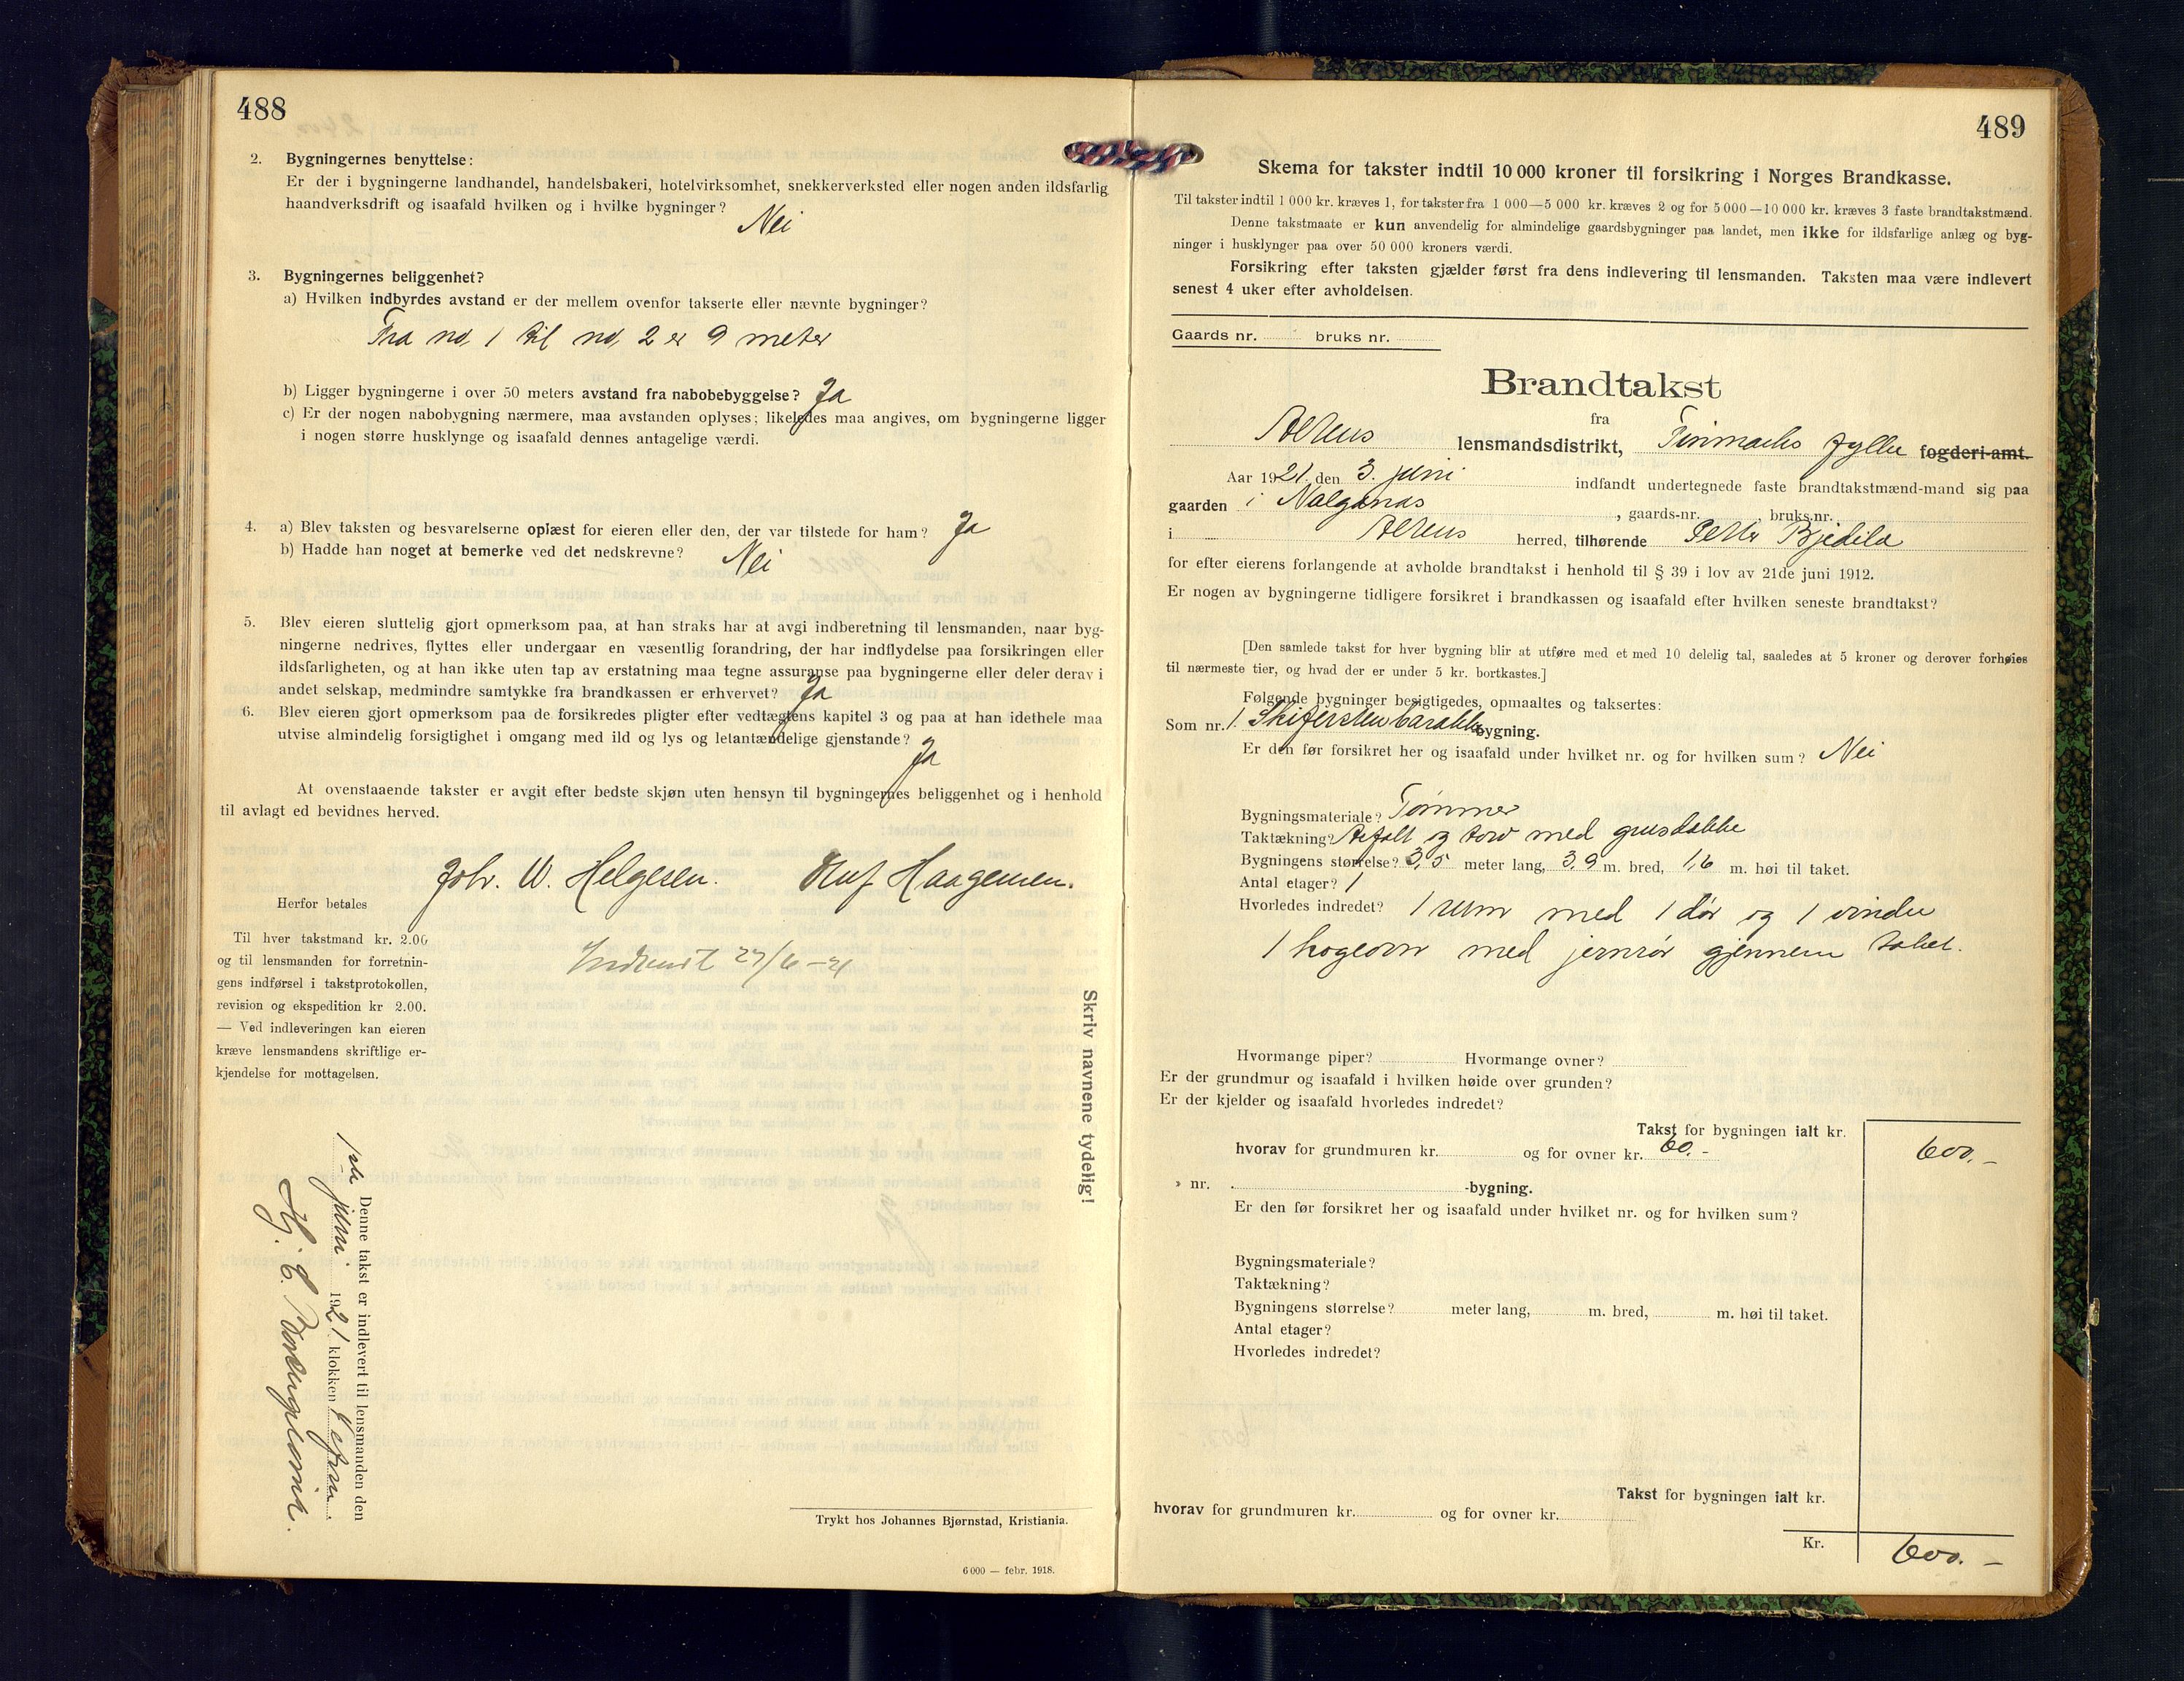 488
2. Bygningernes benyttelse:
Er der i bygningerne landhandel, handelsbakeri, hotelvirksomhet, snekkerverksted eller nogen anden ildsfarlig
haandverksdrift og isaafald hvilken og i hvilke bygninger? Nei
3. Bygningernes beliggenhet?
a) Hvilken indbyrdes avstand er der mellem ovenfor takserte eller nævnte bygninger?
Fra no, 1 til no, 2 er 9 meter
b) Ligger bygningerne i over 50 meters avstand fra nabobebyggelse? Ja
c) Er der nogen nabobygning nærmere, maa avstanden oplyses; likeledes maa angives, om bygningerne ligger
i nogen større husklynge og isaafald dennes antagelige værdi.
4. a) Blev taksten og besvarelserne oplæst for eieren eller den, der var tilstede for ham? Ja
b) Hadde han noget at bemerke ved det nedskrevne? Nei
5. Blev eieren sluttelig gjort opmerksom paa, at han straks har at avgi indberetning til lensmanden, naar byg-
ningerne nedrives, flyttes eller undergaar en væsentlig forandring, der har indflydelse paa forsikringen eller
ildsfarligheten, og at han ikke uten tap av erstatning maa tegne assuranse paa bygningerne eller deler derav i
andet selskap, medmindre samtykke fra brandkassen er erhvervet? Ja
6. Blev eieren gjort opmerksom paa de forsikredes pligter efter vedtægtens kapitel 3 og paa at han idethele maa
utvise almindelig forsigtighet i omgang med ild og lys og letantændelige gjenstande? Ja
At ovenstaaende takster er avgit efter bedste skjøn uten hensyn til bygningernes beliggenhet og i henhold
til avlagt ed bevidnes herved.
Joh. W. Helgesen. Oluf Haagensen.
Herfor betales
Til hver takstmand kr. 2.00
og til lensmanden for forretnin-
gens indførsel i takstprotokollen,
revision og ekspedition kr 2.00.
— Ved indleveringen kan eieren
kræve lensmandens skriftlige er-
kjendelse for mottagelsen.
27/6 – 21
Skriv navnene tydelig!
Denne takst er indlevert til lensmanden den
1ste juni 1921 klokken
Hj. C.
Trykt hos Johannes Bjørnstad, Kristiania.
6 000 — febr. 1918.
489
Skema for takster indtil 10 000 kroner til forsikring i Norges Brandkasse.
Til takster indtil 1 000 kr. kræves 1, for takster fra 1 000—5 000 kr. kræves 2 og for 5 000—10 000 kr. kræves 3 faste brandtakstmænd.
Denne takstmaate er kun anvendelig for almindelige gaardsbygninger paa landet, men ikke for ildsfarlige anlæg og byg-
ninger i husklynger paa over 50 000 kroners værdi.
Forsikring efter taksten gjælder først fra dens indlevering til lensmanden. Taksten maa være indlevert
senest 4 uker efter avholdelsen.
Gaards nr. bruks nr.
Brandtakst
fra
lensmandsdistrikt, Finmarks fylke fogderi-amt.
Aar 1921 den 3. juni indfandt undertegnede faste brandtakstmænd-mand sig paa
gaarden i , gaards-nr. , bruks nr.
i herred, tilhørende
for efter eierens forlangende at avholde brandtakst i henhold til § 39 i lov av 21de juni 1912.
Er nogen av bygningerne tidligere forsikret i brandkassen og isaafald efter hvilken seneste brandtakst?
[Den samlede takst for hver bygning blir at utføre med et med 10 delelig tal, saaledes at 5 kroner og derover forhøies
til nærmeste tier, og hvad der er under 5 kr. bortkastes.]
Følgende bygninger besigtigedes, opmaaltes og taksertes:
Som nr. 1. Skiferstenbarakke bygning.
Er den før forsikret her og isaafald under hvilket nr. og for hvilken sum? Nei
Bygningsmateriale? Tømmer
Taktækning? Asfalt og torv med
Bygningens størrelse? 3,5 meter lang, 3,9 m. bred, 1,6 m. høi til taket.
Antal etager? 1
Hvorledes indredet? 1 rum med 1 dør og 1 vindu
1 kogeovn med jernrør gjennem taket.
Hvormange piper? Hvormange ovner?
Er der grundmur og isaafald i hvilken høide over grunden?
Er der kjelder og isaafald hvorledes indredet?
Takst for bygningen ialt kr. 600.–
hvorav for grundmuren kr. og for ovner kr. 60.–
» nr. -bygning.
Er den før forsikret her og isaafald under hvilket nr. og for hvilken sum?
Bygningsmateriale?
Taktækning?
Bygningens størrelse? meter lang, m. bred, m. høi til taket.
Antal etager?
Hvorledes indredet?
Takst for bygningen ialt kr.
hvorav for grundmuren kr. og for ovner kr.
Kr. 600.–